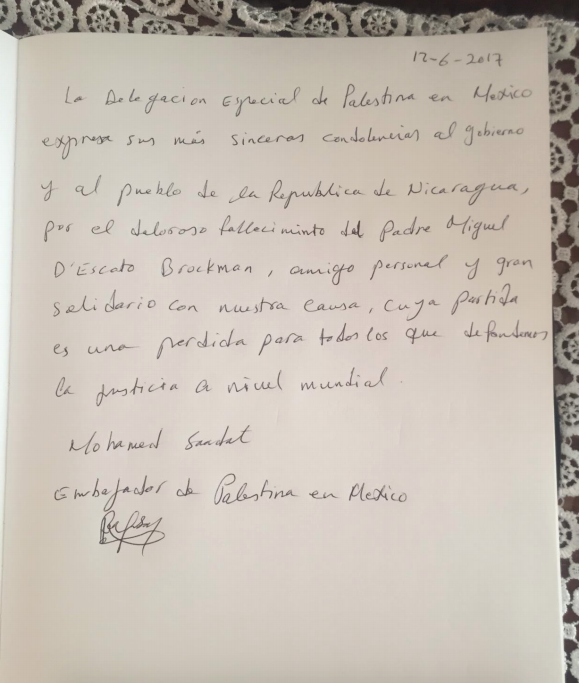 12-6-2017
La Delegacion Especial de Palestina en Mexico
expresa sus más sinceras condolencias al gobierno
y al pueblo de la Republica de Nicaragua,
por el doloroso fallecimiento del Padre Miguel
D'Escoto Brockman, amigo personal y gran
solidario con nuestra causa, cuya partida
es una perdida para todos los que defendemos
la justicia a nivel mundial.
Mohamed Saadat
Embajador de Palestina en Mexico